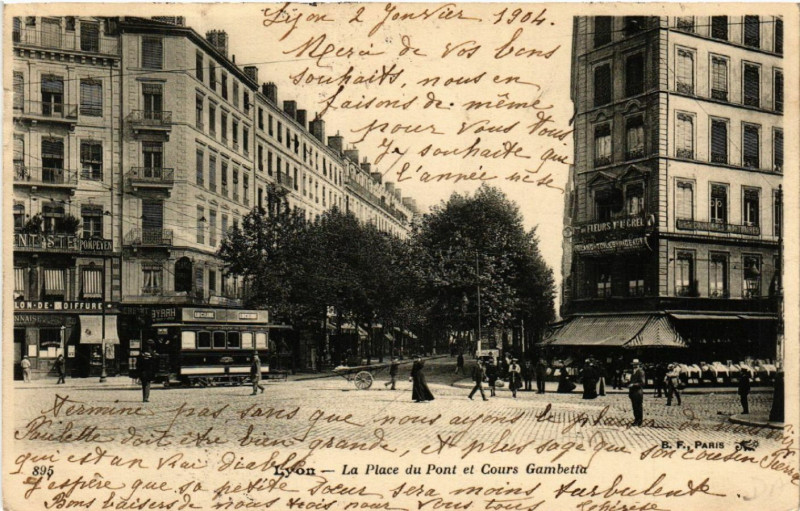 Lyon 2 Janvier 1904.
Merci de vos bons
souhaits, nous en
faisons de même
pour vous tous
J'y souhaite que
l'année
FLEURS
POMPEYEN
LON-DE-COIFFURE
BYRRH
termine pas sans que nous ayons le plaisir de
Paulette doit être bien grande, et plus sage que son cousin Pierre
qui est un vrai diable
895 Lyon — La Place du Pont et Cours Gambetta
B. F., PARIS
J'espère que sa petite sœur sera moins turbulente.
Bons baisers de nous trois pour vous tous